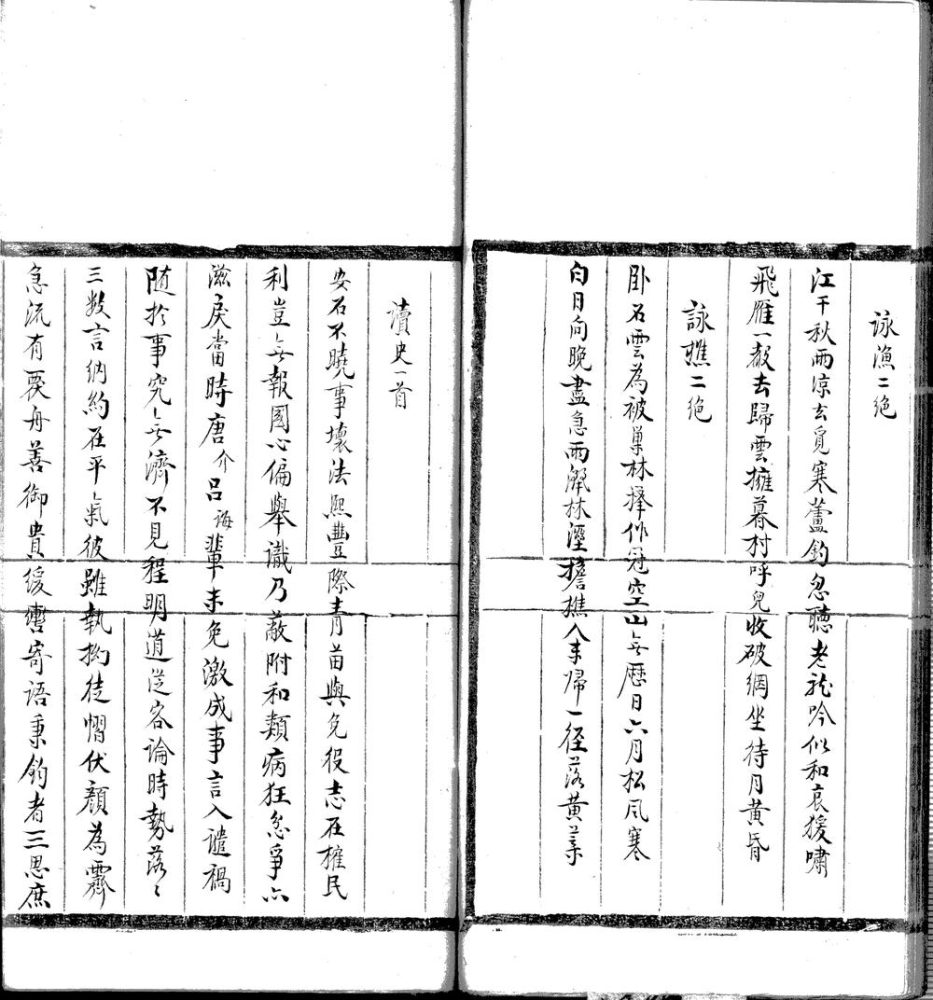 詠漁二絕
江干秋雨涼去覓寒蘆釣忽聽老龍吟似和哀猨嘯
飛雁一聲去歸雲擁暮村呼兒收破網坐待月黃昏
詠樵二絕
卧石雲為被巢林擇作冠空山無歷日六月松風寒
白日向晚盡急雨解林溼擔樵人未歸一徑落黃葉
讀史一首
安石不曉事壞法熙豐際青苗與免役志在搉民
利豈無報國心偏舉識乃蔽附和類病狂忿爭六
滋戾當時唐介呂誨輩未免激成事言入讉禍
隨於事究無濟不見程明道從容論時勢落〻
三數言納約在平氣彼雖執拗徒慴伏顏為霽
急流有覆舟善御貴緩轡寄語秉鈞者三思庶